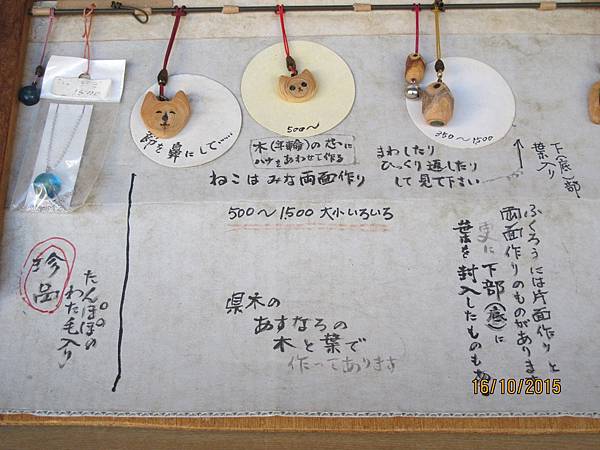 節を鼻にして……
500〜
木(年輪)の芯に
かけをあわせて作る
350〜1500
まわしたり
ひっくり返したり
して見て下さい
ねこはみな両面作り
500〜1500 大小いろいろ
下(底)部
葉入り
ふくろうには片面作りと
両面作りのものがあります
更に下部(底)に
葉を封入したものも
県木の
あすなろの
木と葉で
作ってあります
珍品
たんぽぽの
わた毛入り
16/10/2015